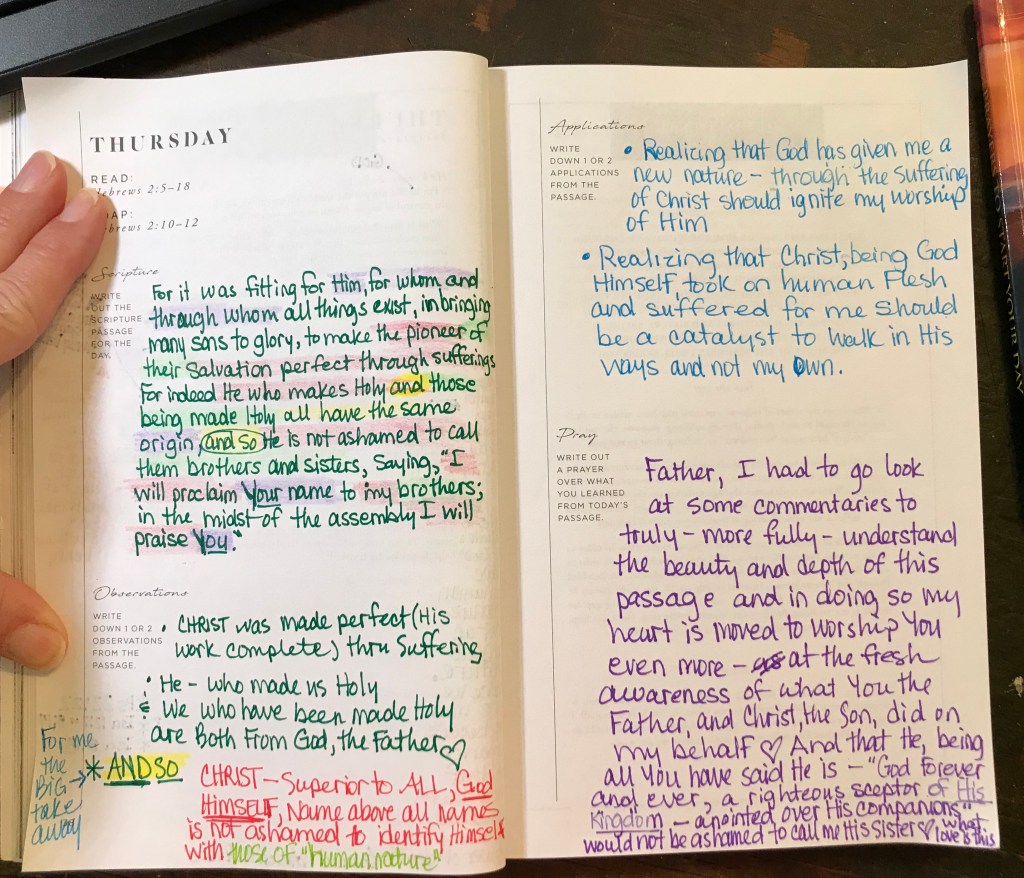 THURSDAY
READ:
Hebrews 2:5–18
SOAP:
Hebrews 2:10–12
Scripture
WRITE
OUT THE
SCRIPTURE
PASSAGE
FOR THE
DAY.
For it was fitting for Him, for whom and
through whom all things exist, in bringing
many sons to glory, to make the pioneer of
their Salvation perfect through sufferings
For indeed He who makes Holy and those
being made Holy all have the same
origin, and so He is not ashamed to call
them brothers and sisters, saying, "I
will proclaim Your name to my brothers;
in the midst of the assembly I will
praise You."
Observations
WRITE
DOWN 1 OR 2
OBSERVATIONS
FROM THE
PASSAGE.
• CHRIST was made perfect (His
work complete) thru Suffering
• He - who made us Holy
& We who have been made Holy
are Both From God, the Father ♡
For me
the
BIG →
take
away
* AND SO
CHRIST - Superior to ALL, God
HIMSELF, Name above all names
is not ashamed to identify Himself
with those of "human nature"
Applications
WRITE
DOWN 1 OR 2
APPLICATIONS
FROM THE
PASSAGE.
• Realizing that God has given me a
new nature - through the suffering
of Christ should ignite my worship
of Him
• Realizing that Christ, being God
Himself, took on human Flesh
and suffered for me should
be a catalyst to walk in His
ways and not my Own.
Pray
WRITE OUT
A PRAYER
OVER WHAT
YOU LEARNED
FROM TODAY'S
PASSAGE.
Father, I had to go look
at some commentaries to
truly - more fully - understand
the beauty and depth of this
passage and in doing so my
heart is moved to worship You
even more - at the fresh
awareness of what You the
Father, and Christ, the Son, did on
my behalf ♡ And that He, being
all You have said He is - "God forever
and ever, a righteous sceptor of His
Kingdom - anointed over His companions"
would not be ashamed to call me His sister ♡ what
love is this